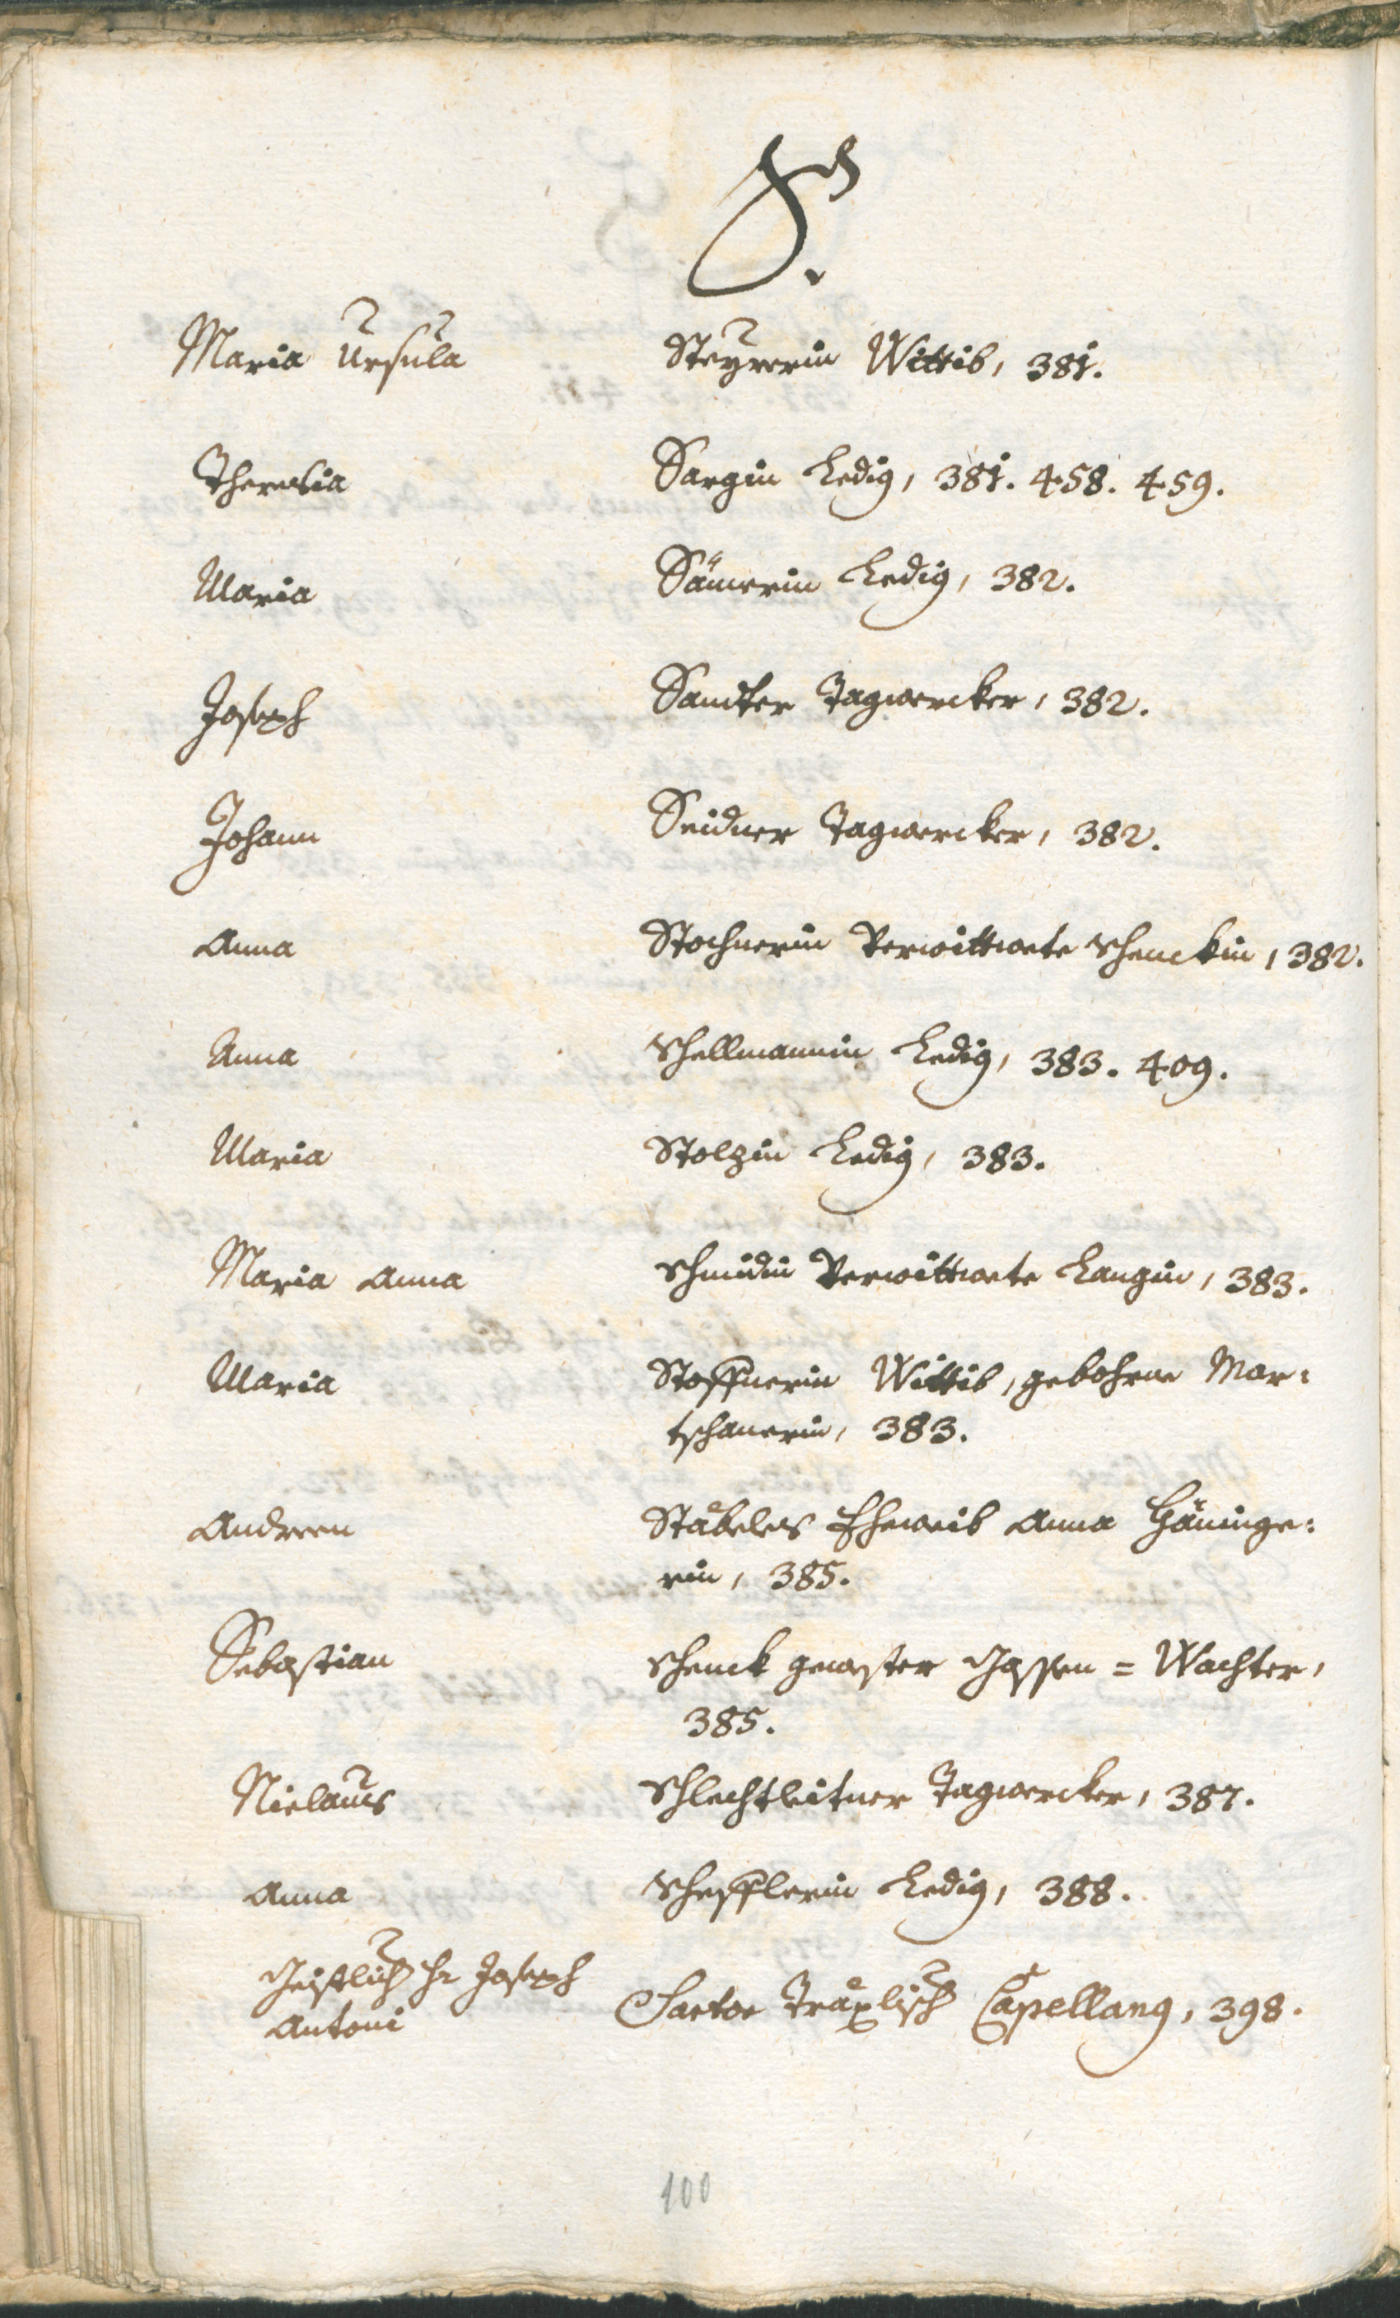 S.
Maria Ursula Steyrerin Wittib, 381.
Theresia Sargin Ledig, 381. 458. 459.
Maria Säurerin Ledig, 382.
Joseph Sandter Tagwercker, 382.
Johann Seidner Tagwercker, 382.
Anna Stochnerin Verwittwete Schenckin, 382.
Anna Schellmannin Ledig, 383. 409.
Maria Stolzin Ledig, 383.
Maria Anna Schmidin Verwittwete Langin, 383.
Maria Stoffnerin Wittib, gebohrne Mar:
tschanerin, 383.
Andreen Stäbeles Eheweib Anna Häninge:
rin, 385.
Sebastian Schenck gewester Gassen = Wachter,
385.
Niclaus Schlechtleitner Tagwercker, 387.
Anna Schefflerin Ledig, 388.
Geistlich Hr Joseph
Antoni Sartor Träxlisch Capellang, 398.
100